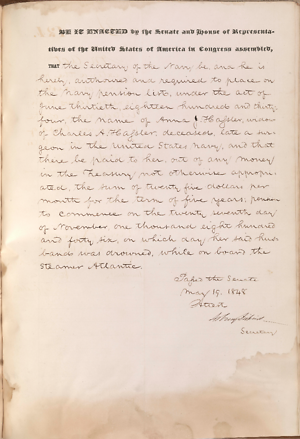 BE IT ENACTED by the Senate and House of Representa-
tives of the United States of America in Congress assembled,
THAT the Secretary of the Navy be, and he is
hereby, authorized and required to place on
the Navy pension list, under the act of
June thirtieth, eighteen hundred and thirty
four, the name of Anna Hassler, widow
of Charles A. Hassler, deceased, late a sur-
geon in the United States Navy, and that
there be paid to her, out of any money
in the Treasury not otherwise appropri-
ated, the sum of twenty five dollars per
month for the term of five years; pension
to commence on the twenty seventh day
of November one thousand eight hundred
and forty six, on which day her said hus-
band was drowned, while on board the
steamer Atlantic.
the Senate
May 15, 1848
Attest
Secretary